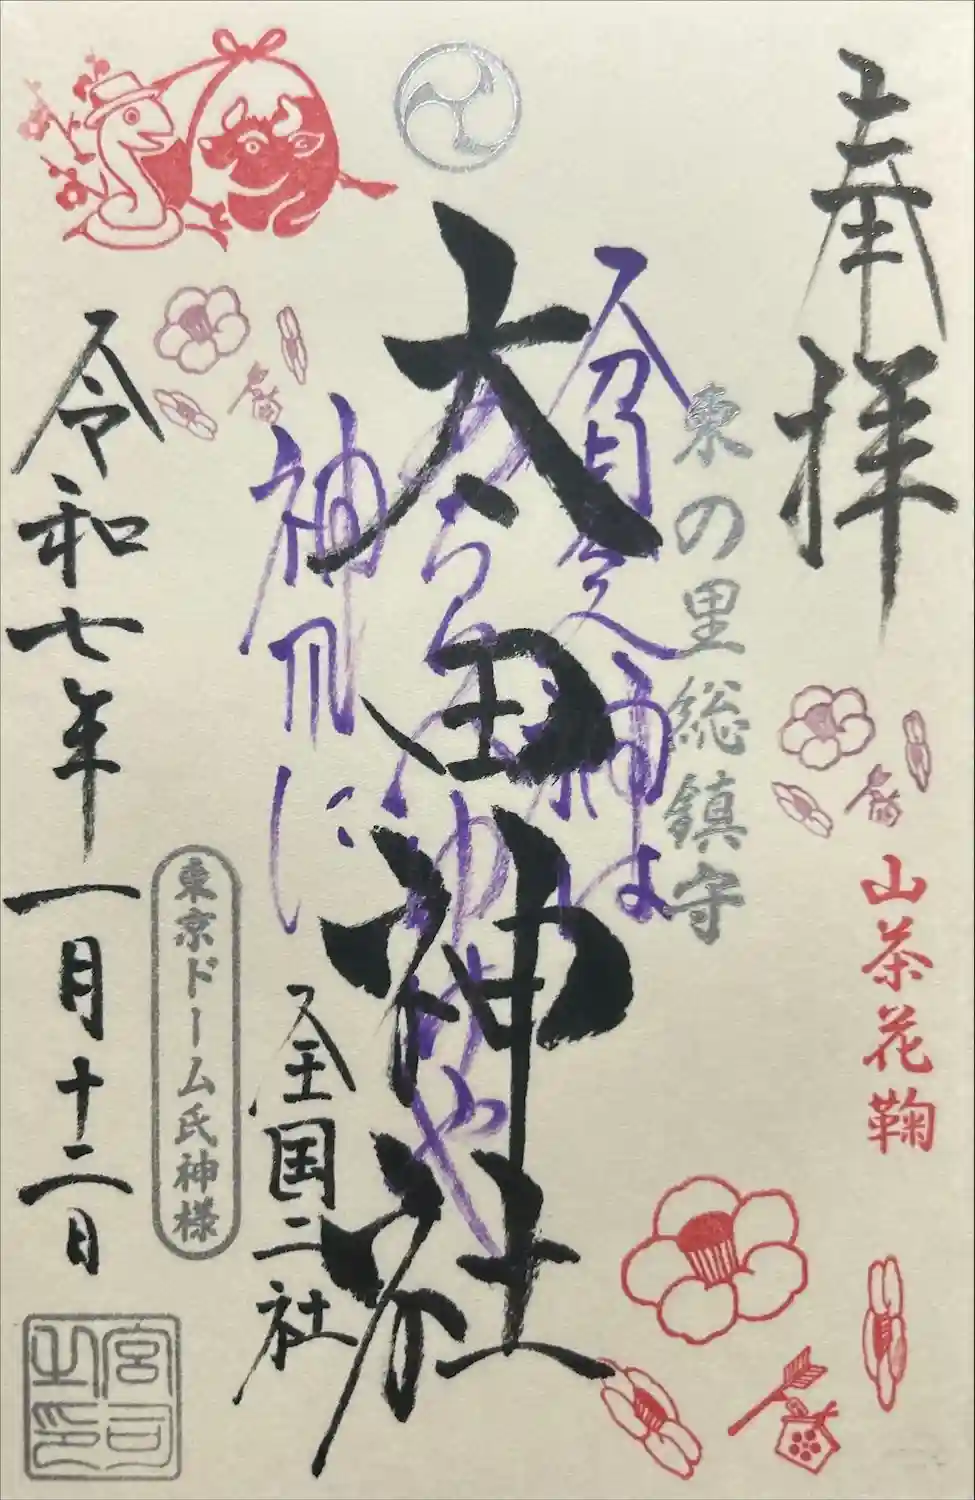 奉拝
山茶花鞠
東の里総鎮守
貧乏神は
神川に
太田神社
全国二社
東京ドーム氏神様
令和七年一月十二日
宮司之印